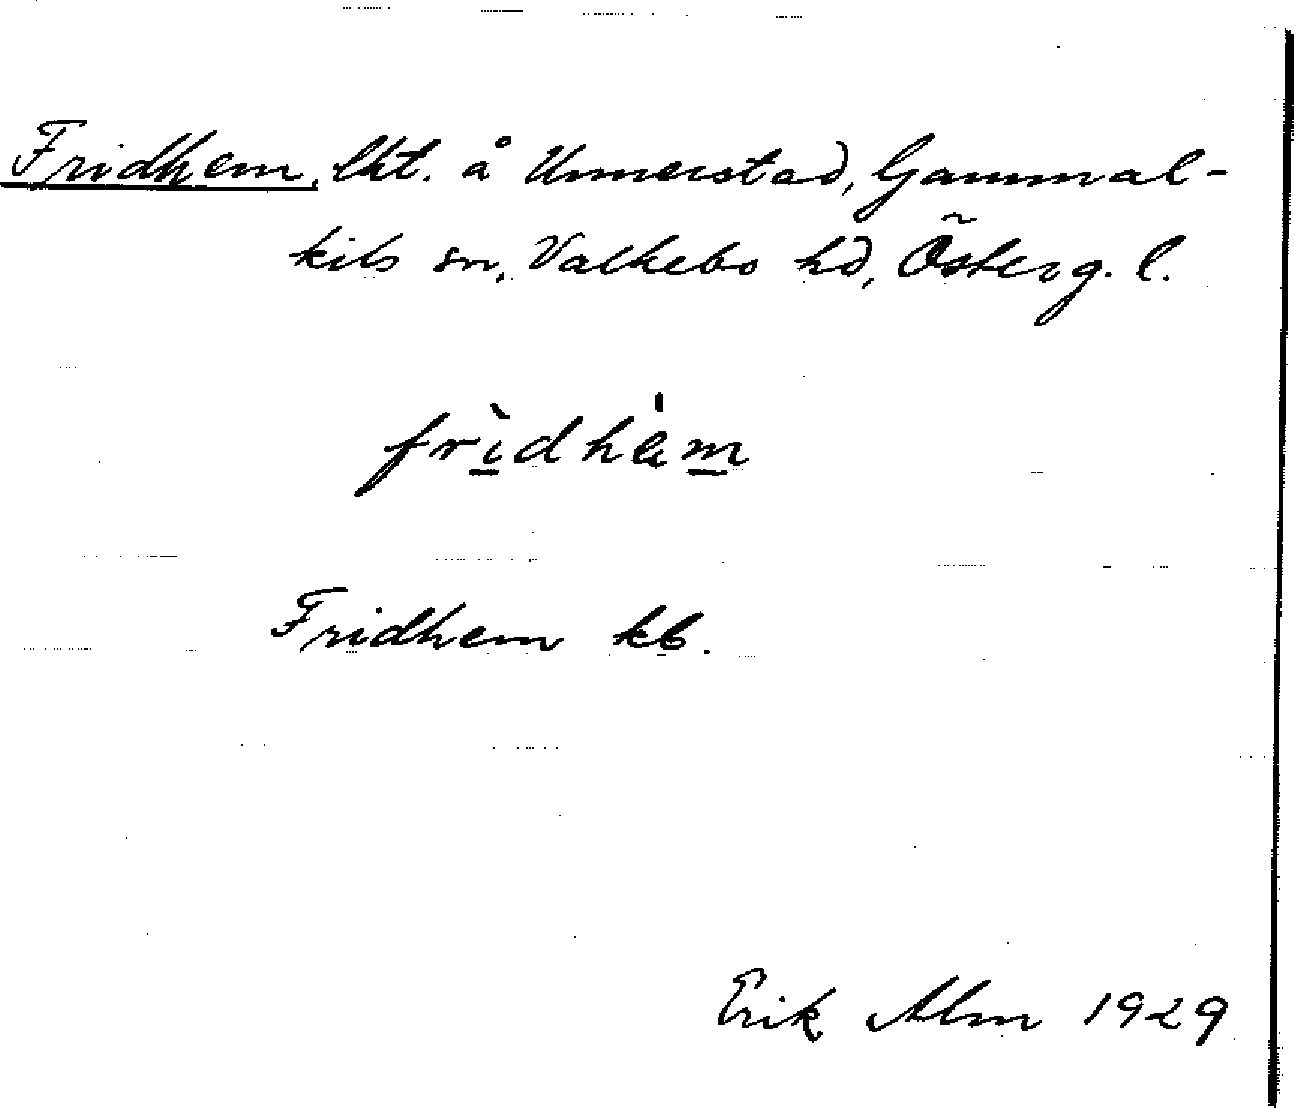 Fridhem, lht. å Unnerstad, Gammal-
kils sn, Valkebo hd, Österg. l.
frìdhèm
Fridhem kb.
Erik Alm 1929